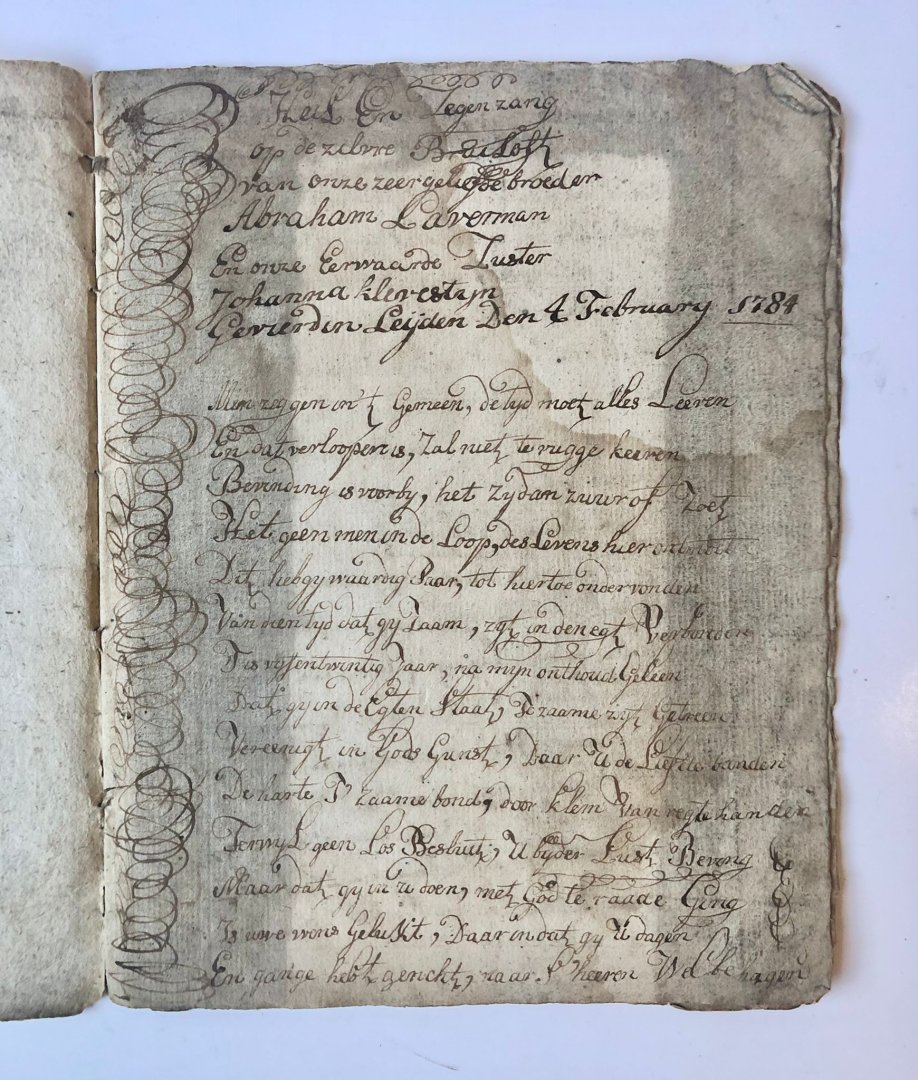 Heil En Zegenzang
op de zilvre Bruiloft
van onze zeer geliefde broeder
Abraham Laverman
En onze Eerwaarde Zuster
Johanna Klevestijn
Gevierd in Leijden Den 4 February 1784
Men zeggen in't Gemeen, de tyd moet alles Leeren
En dat verloopen is, zal niet te rugge keeren
Bevinding is voorby, het zy dan zuur of Zoet
Het geen men in de Loop, des Levens hier ontmoet
Dit heb gy waardig Paar, tot hiertoe ondervonden
Van dien tyd dat gy Zaam, zyt in den egt Verbonden
T is vyfentwintig Jaar, na mijn onthoud Geleen
Dat gy in de Egten Staat, Te zaame zyt Getreen
Vereenigt in Gods Gunst, Daar U de Liefde banden
De harte T' zaame bond, door klem Van regte handen
Terwyl geen Los Besluit, U by der Lust Beving
Maar dat gy in u doen, met God te raade Ging
Is uwe wens Gelukt, Daar in dat gy U dagen
En gange hebt gericht, naar S' heeren Welbehagen